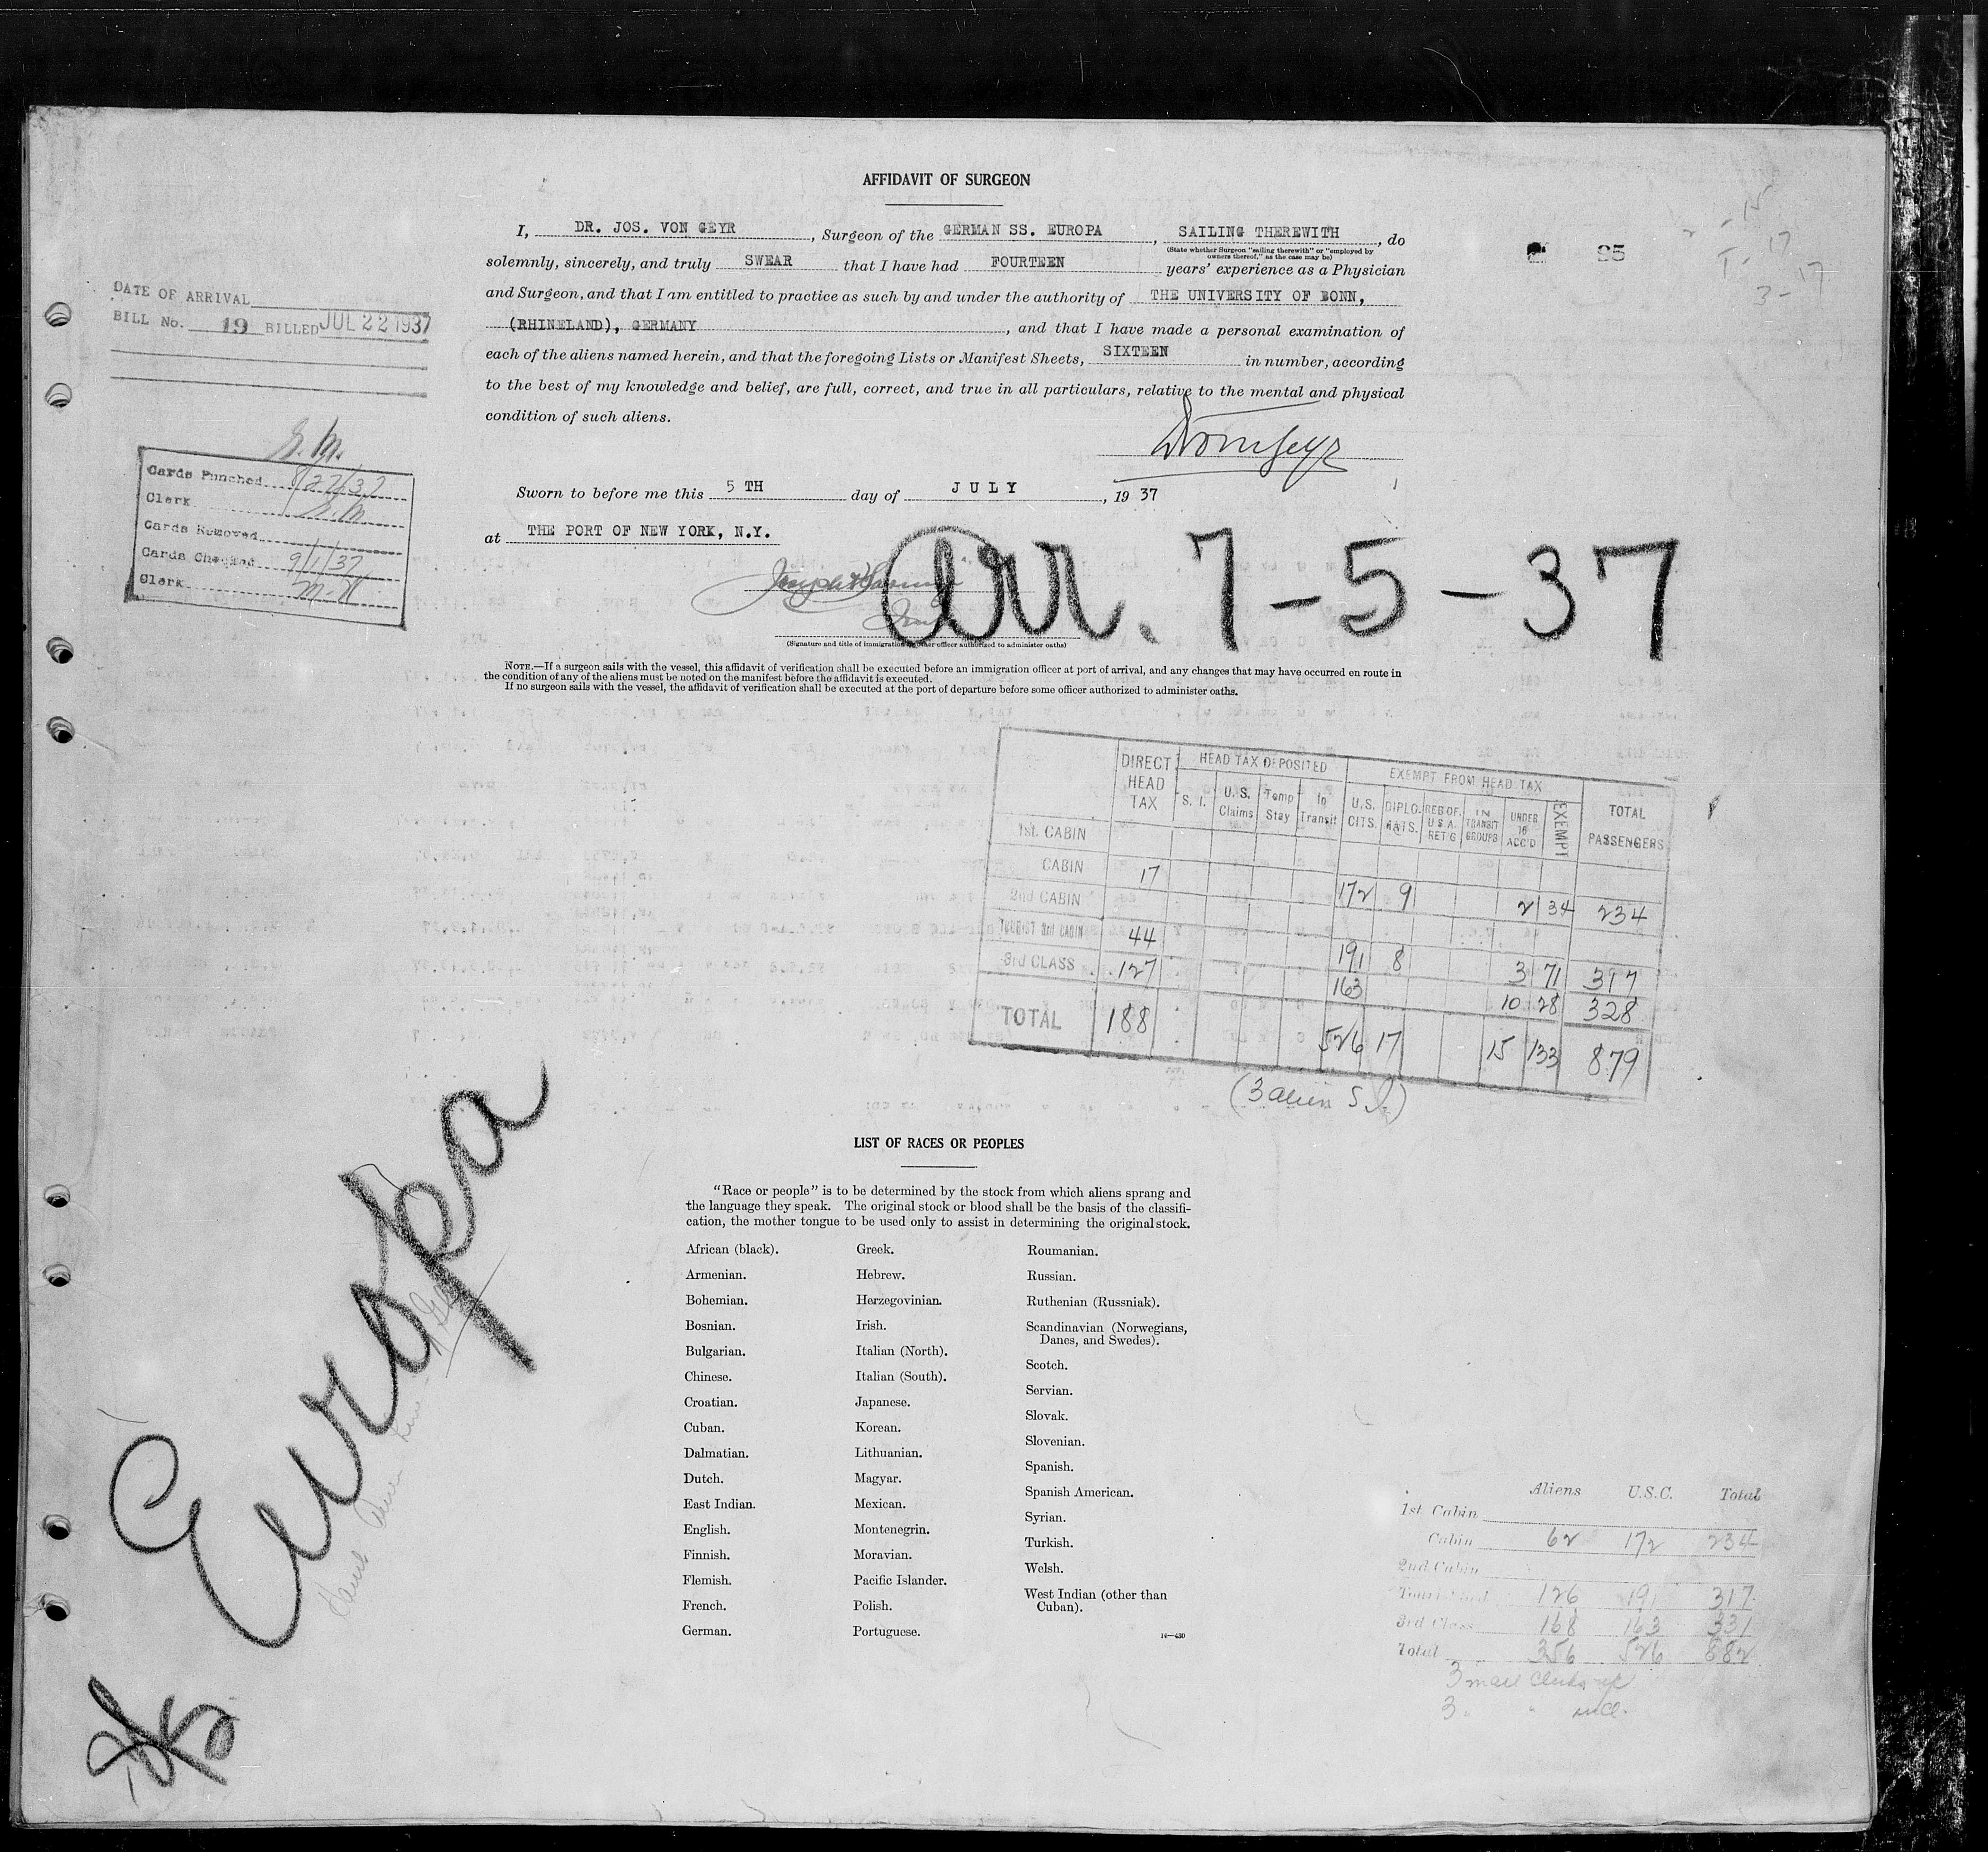 AFFIDAVIT OF SURGEON
I, DR. JOS. VON GEYR, Surgeon of the GERMAN SS. EUROPA, SAILING THEREWITH, do
(State whether Surgeon "sailing therewith" or "employed by owners thereof," as the case may be)
solemnly, sincerely, and truly SWEAR that I have had FOURTEEN years' experience as a Physician
and Surgeon, and that I am entitled to practice as such by and under the authority of THE UNIVERSITY OF BONN,
(RHINELAND), GERMANY, and that I have made a personal examination of
each of the aliens named herein, and that the foregoing Lists or Manifest Sheets, SIXTEEN in number, according
to the best of my knowledge and belief, are full, correct, and true in all particulars, relative to the mental and physical
condition of such aliens.
Sworn to before me this 5 TH day of JULY, 19 37
at THE PORT OF NEW YORK, N.Y.
Arr. 7-5-37
(Signature and title of immigration or other officer authorized to administer oaths)
NOTE.—If a surgeon sails with the vessel, this affidavit of verification shall be executed before an immigration officer at port of arrival, and any changes that may have occurred en route in
the condition of any of the aliens must be noted on the manifest before the affidavit is executed.
If no surgeon sails with the vessel, the affidavit of verification shall be executed at the port of departure before some officer authorized to administer oaths.
DATE OF ARRIVAL
BILL No. 19 BILLED JUL 22 1937
Cards Punched 8/27/37
Clerk
Cards Removed
Cards Checked 9/1/37
Clerk
95
DIRECT HEAD TAX
HEAD TAX DEPOSITED
EXEMPT FROM HEAD TAX
TOTAL PASSENGERS
S. I. U. S. Claims Temp Stay In Transit U.S. CITS. DIPLOMATS. RES OF U S A RET'G IN TRANSIT GROUPS UNDER 16 ACC'D EXEMPT
1st. CABIN
CABIN 17 172 9 2 34 234
2nd CABIN
TOURIST 3rd CABIN 44 191 8 3 71 317
3rd CLASS 127 163 10 28 328
TOTAL 188 526 17 15 133 879
(3 alien S.I.)
LIST OF RACES OR PEOPLES
"Race or people" is to be determined by the stock from which aliens sprang and
the language they speak. The original stock or blood shall be the basis of the classifi-
cation, the mother tongue to be used only to assist in determining the original stock.
African (black).
Armenian.
Bohemian.
Bosnian.
Bulgarian.
Chinese.
Croatian.
Cuban.
Dalmatian.
Dutch.
East Indian.
English.
Finnish.
Flemish.
French.
German.
Greek.
Hebrew.
Herzegovinian.
Irish.
Italian (North).
Italian (South).
Japanese.
Korean.
Lithuanian.
Magyar.
Mexican.
Montenegrin.
Moravian.
Pacific Islander.
Polish.
Portuguese.
Roumanian.
Russian.
Ruthenian (Russniak).
Scandinavian (Norwegians,
Danes, and Swedes).
Scotch.
Servian.
Slovak.
Slovenian.
Spanish.
Spanish American.
Syrian.
Turkish.
Welsh.
West Indian (other than
Cuban).
14—430
Europa
Aliens U.S.C. Total
1st Cabin
Cabin 62 172 234
2nd Cabin
Tourist 126 191 317
3rd Class 168 163 331
Total 356 526 882
3 mail clerks
3 " "